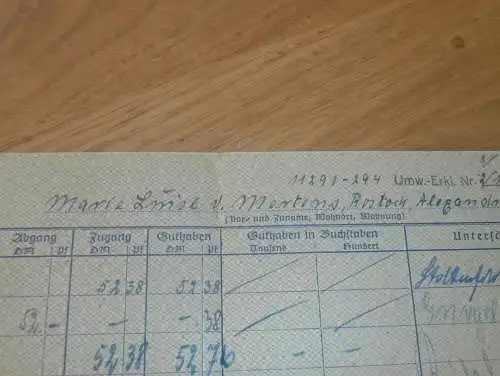 11291-294 Umw.-Erkl. Nr.
Marie Luise v. Mertens, Rostock, Alexandri
(Vor- und Zuname, Wohnort, Wohnung)
Abgang Zugang Guthaben Guthaben in Buchstaben Unterſ
DM Pf DM Pf DM Pf Tauſend Hundert
52 38 52 38
52 - - - 38
52 38 52 76 - -